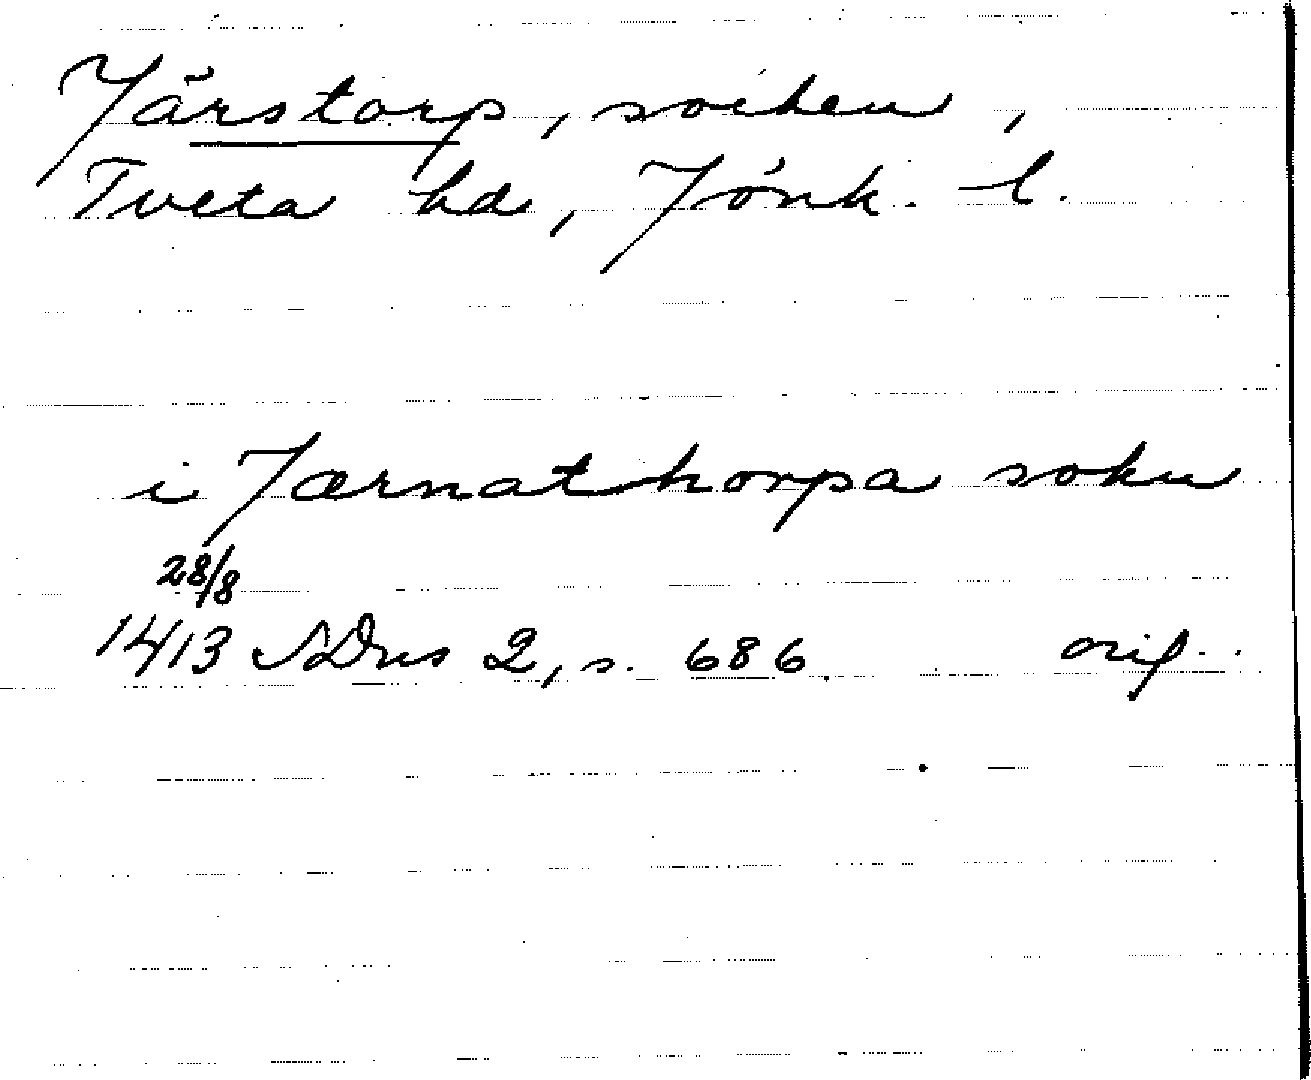 Järstorp, socken,
Tveta hd, Jönk. l.
i Jærnathorpa sokn
28/8
1413 SDns 2, s. 686 orig.